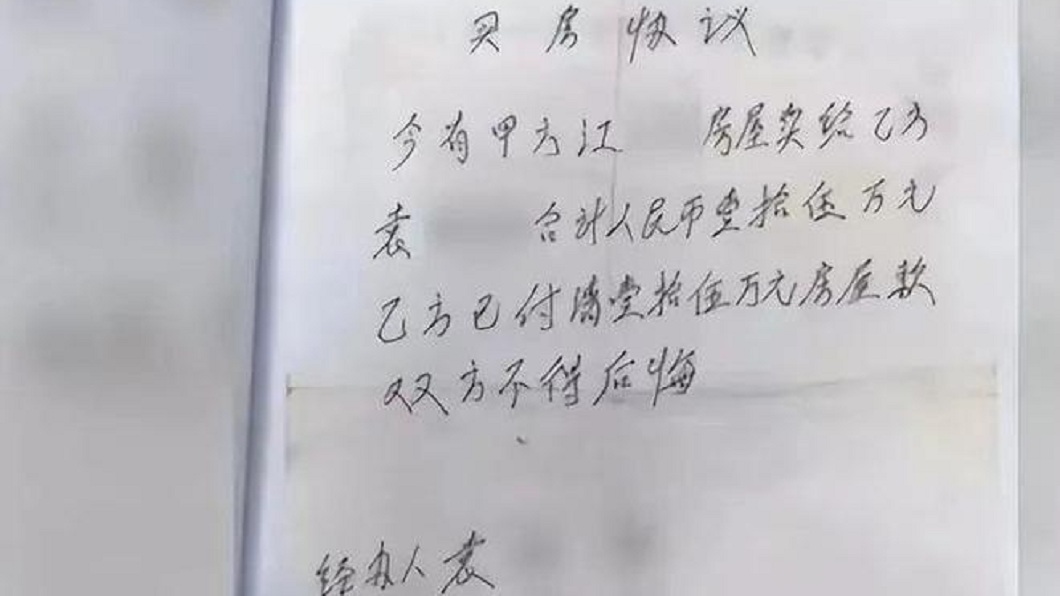 买房协议
今有甲方江 房屋卖给乙方
袁 合计人民币壹拾伍万元
乙方已付清壹拾伍万元房屋款
双方不得后悔
经办人袁